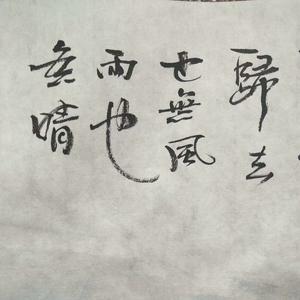 歸去
也無風
雨也
無晴